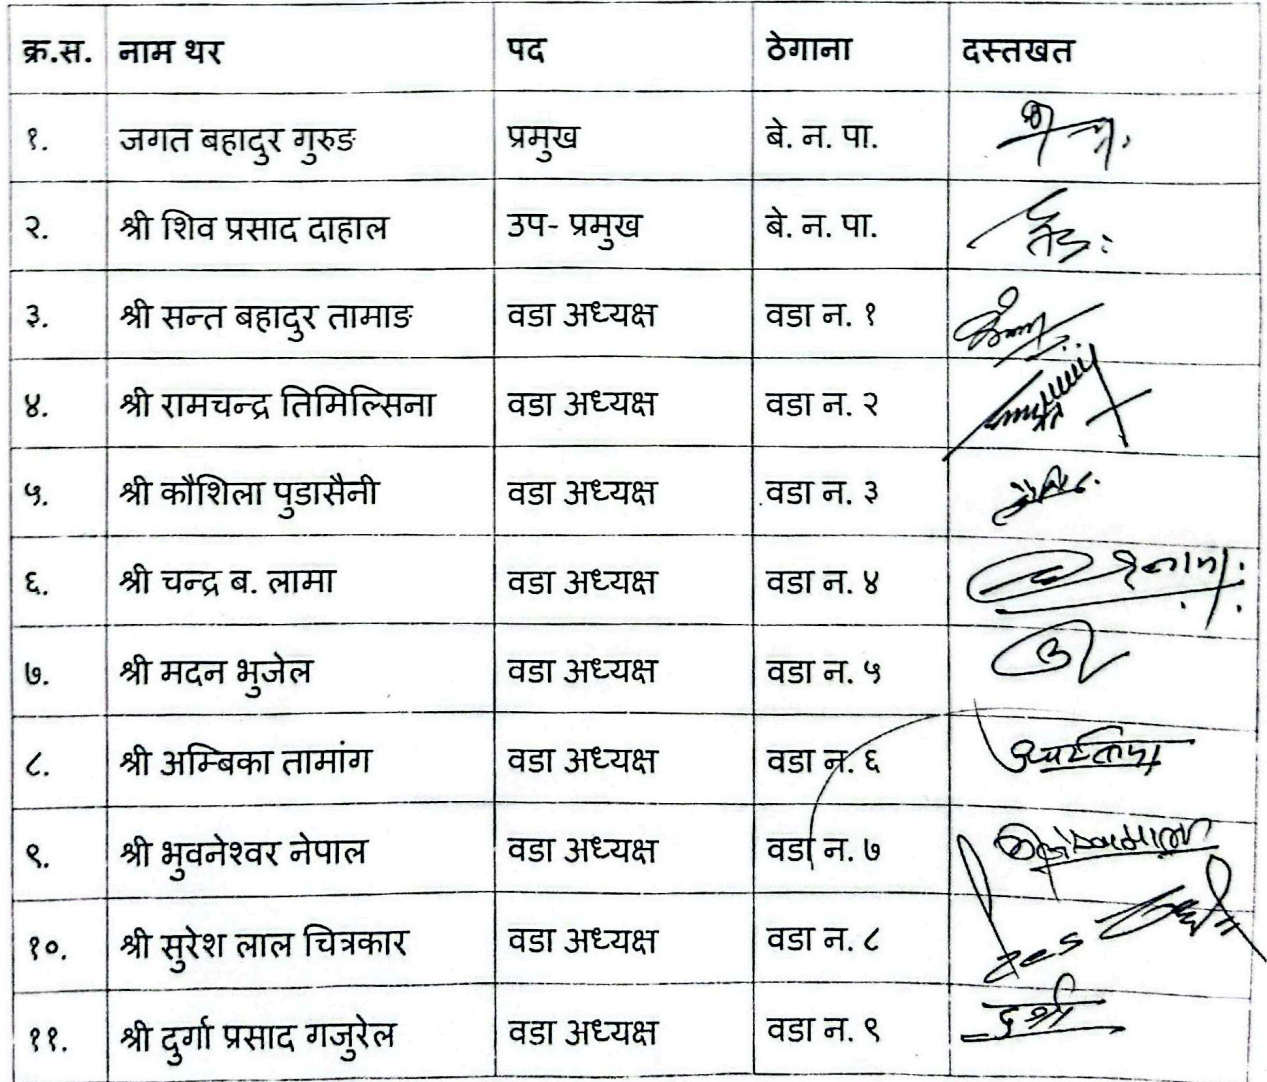 क्र.स. नाम थर पद ठेगाना दस्तखत
१. जगत बहादुर गुरुङ प्रमुख बे. न. पा.
२. श्री शिव प्रसाद दाहाल उप- प्रमुख बे. न. पा.
३. श्री सन्त बहादुर तामाङ वडा अध्यक्ष वडा न. १
४. श्री रामचन्द्र तिमिल्सिना वडा अध्यक्ष वडा न. २
५. श्री कौशिला पुडासैनी वडा अध्यक्ष वडा न. ३
६. श्री चन्द्र ब. लामा वडा अध्यक्ष वडा न. ४
७. श्री मदन भुजेल वडा अध्यक्ष वडा न. ५
८. श्री अम्बिका तामांग वडा अध्यक्ष वडा न. ६
९. श्री भुवनेश्वर नेपाल वडा अध्यक्ष वडा न. ७
१०. श्री सुरेश लाल चित्रकार वडा अध्यक्ष वडा न. ८
११. श्री दुर्गा प्रसाद गजुरेल वडा अध्यक्ष वडा न. ९